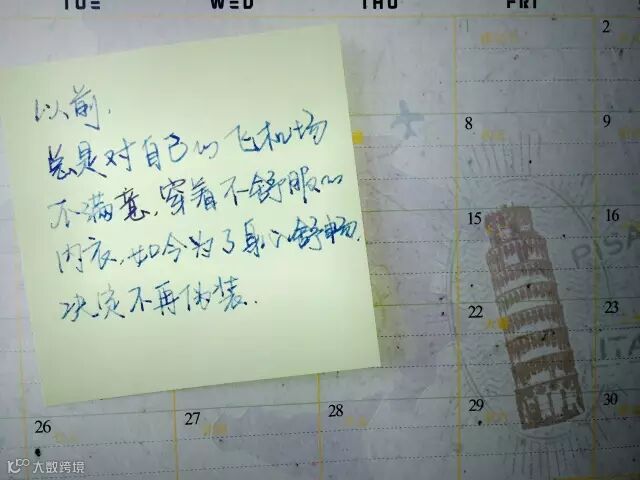 TUE WED THU FRI
以前,
总是对自己的飞机场
不满意,穿着不舒服的
内衣,如今为了身心舒畅,
决定不再伪装.
1 2
8 9
15
PISA
22 23
ITA
26 27 28 29 30
大数跨境